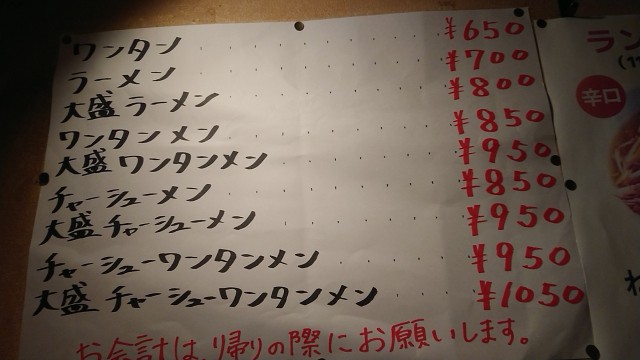 ワンタン ¥650
ラーメン ¥700
大盛ラーメン ¥800
ワンタンメン ¥850
大盛ワンタンメン ¥950
チャーシューメン ¥850
大盛チャーシューメン ¥950
チャーシューワンタンメン ¥950
大盛チャーシューワンタンメン ¥1050
お会計は、帰りの際にお願いします。
ラン
辛口